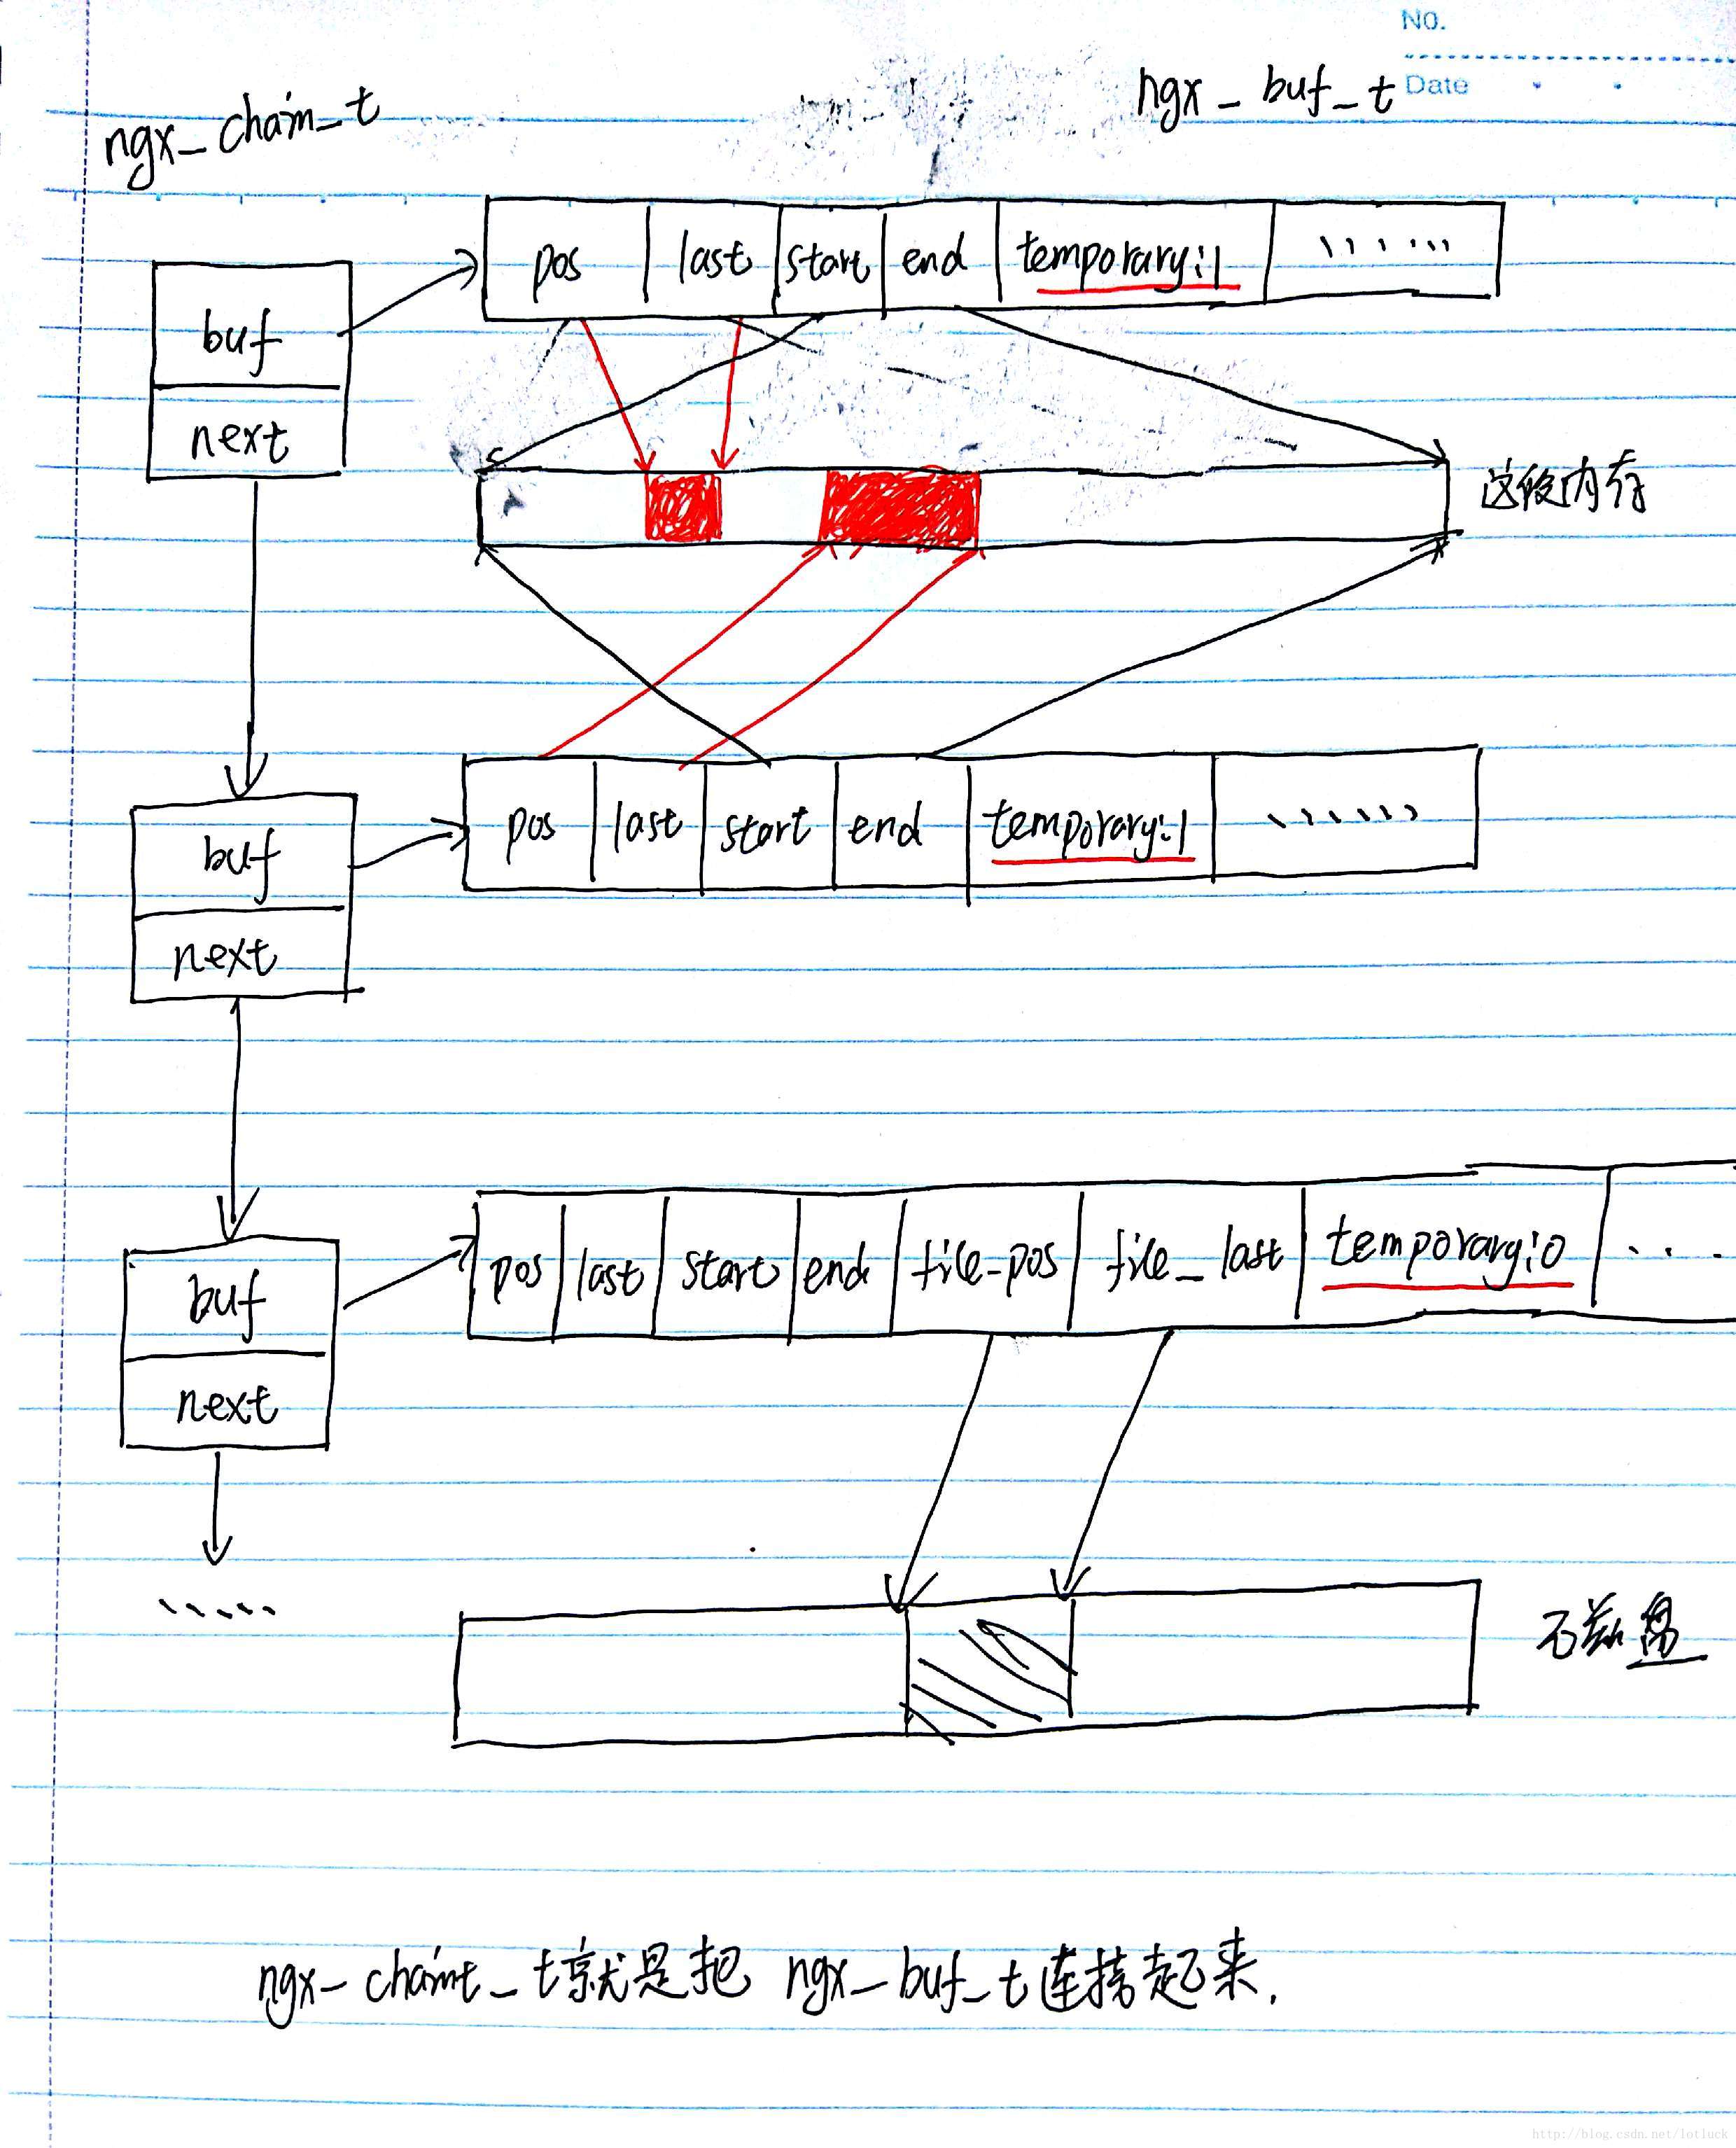 No.
Date
ngx_chain_t
ngx_buf_t
pos last start end temporary:1 ......
buf
next
这段内存
pos last start end temporary:1 ......
buf
next
pos last start end file_pos file_last temporary:0 ....
buf
next
.....
磁盘
ngx_chaint_t就是把 ngx_buf_t连接起来.
http://blog.csdn.net/lotluck